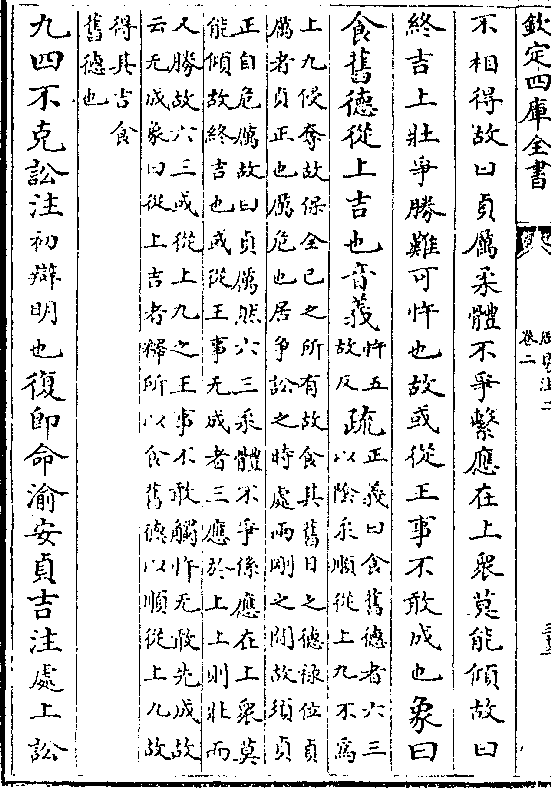 欽定四庫全書
卷二
不相得故曰貞厲柔體不爭繫應在上眾莫能傾故曰
終吉上壯爭勝難可忤也故或從王事不敢成也象曰
食舊德從上吉也音義忤五故反疏正義曰食舊德者六三以陰柔順從上九不為
上九侵奪故保全己之所有故食其舊日之德祿位貞
厲者貞正也厲危也居爭訟之時處兩剛之間故須貞
正自危厲故曰貞厲然六三柔體不爭係應在上眾莫
能傾故終吉也或從王事无成者三應於上上則壯而
又勝故六三或從上九之王事不敢觸忤无敢先成故
云无成象曰從上吉者釋所以食舊德以順從上九故
得其吉食
舊德也
九四不克訟注初辯明也復即命渝安貞吉注處上訟